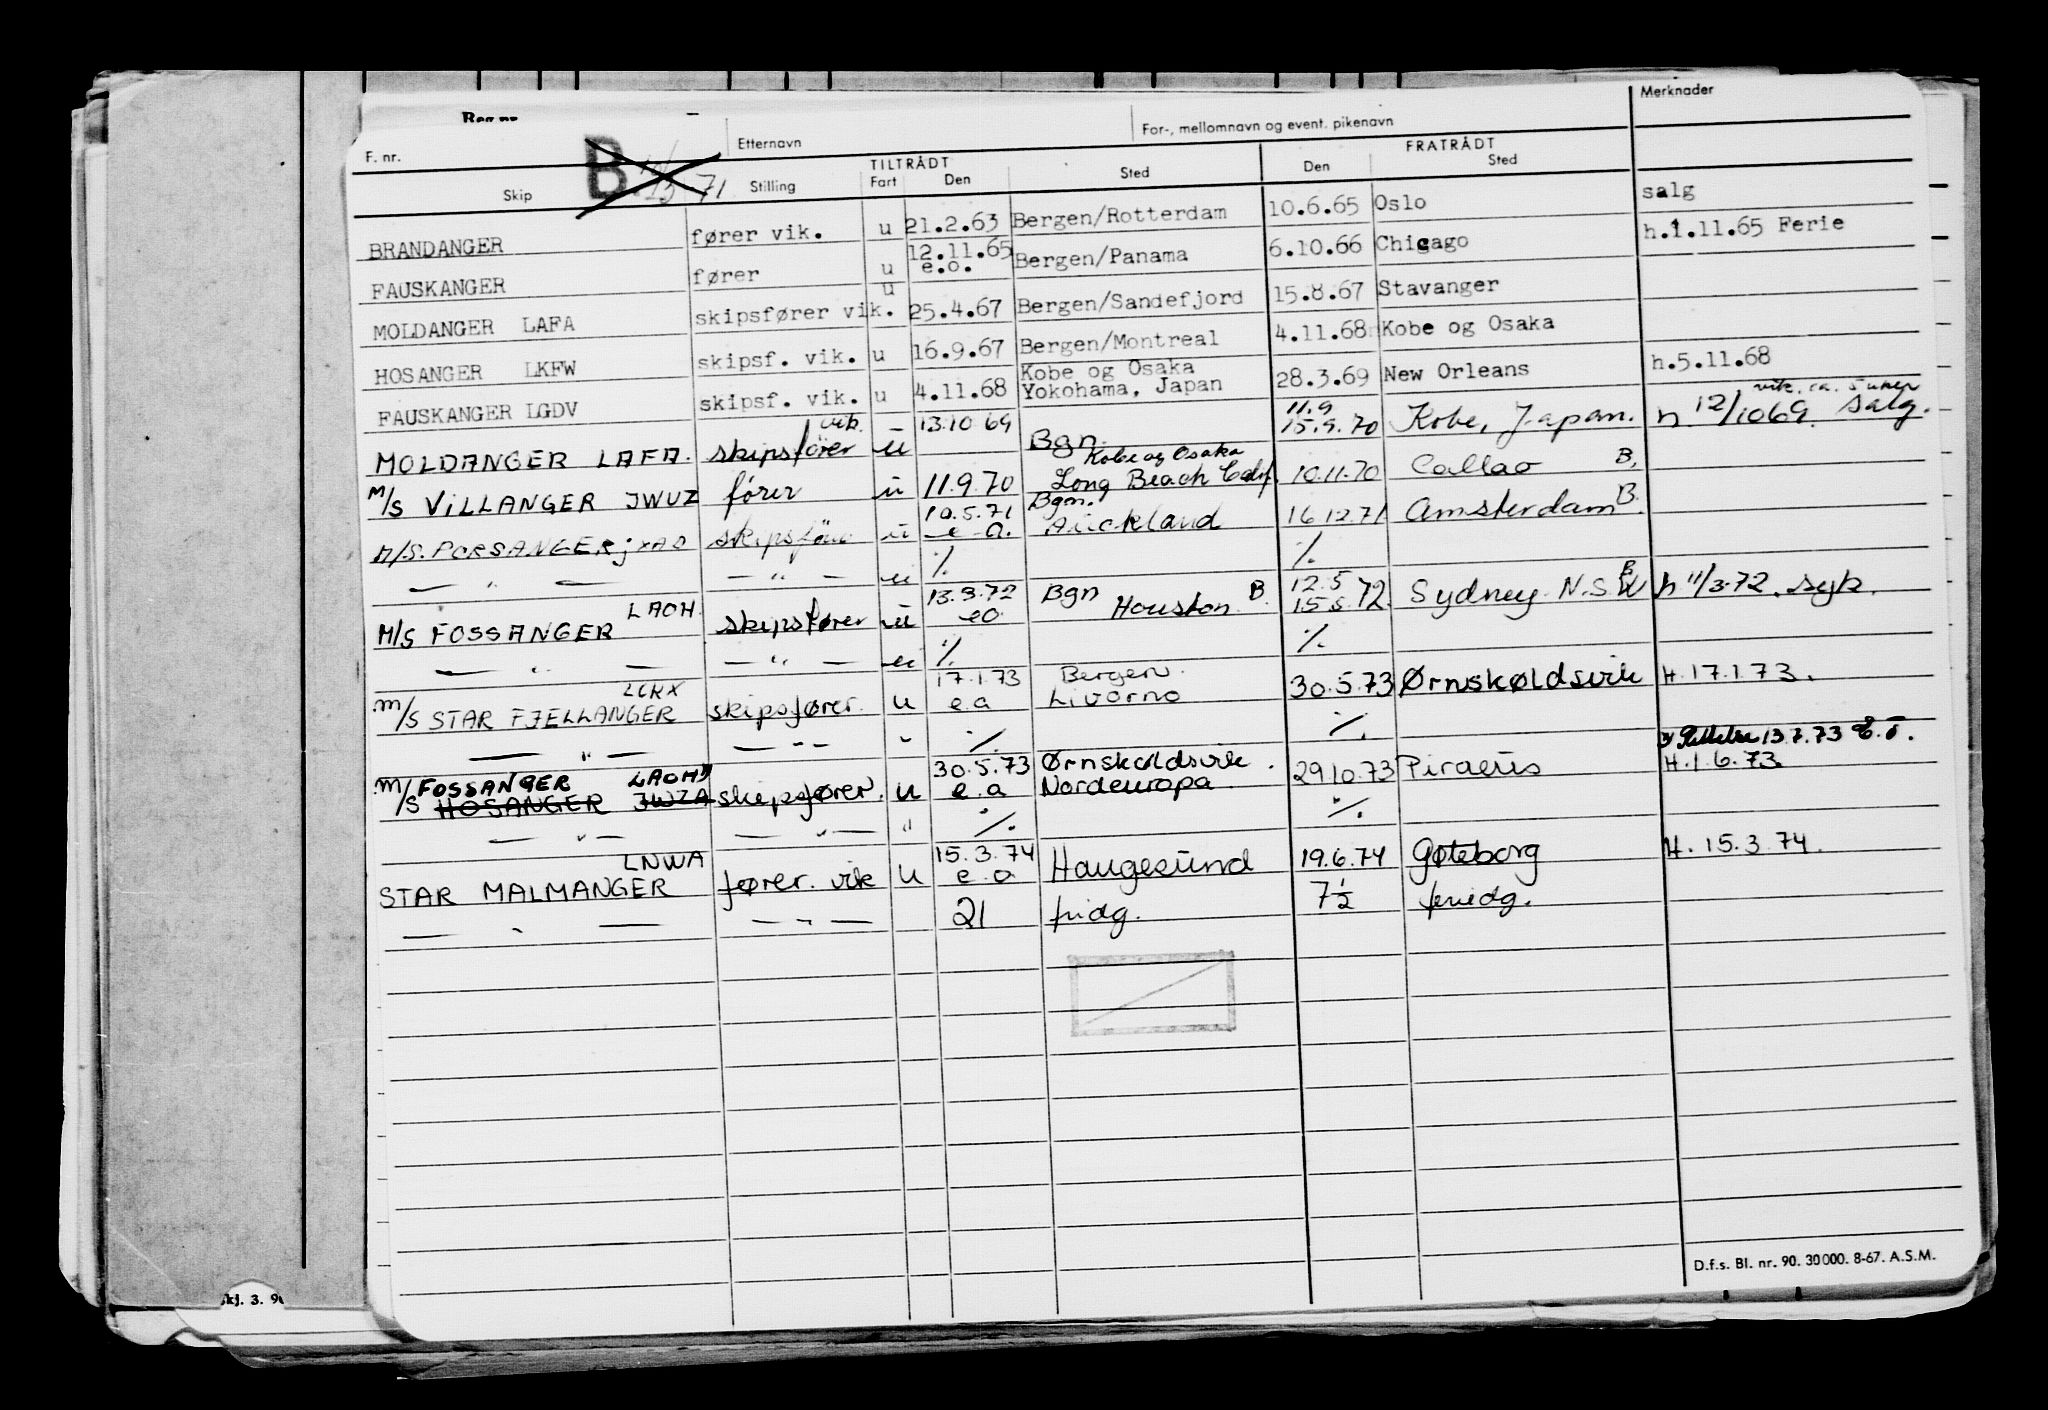 Merknader
F. nr.
Etternavn
For-, mellomnavn og event. pikenavn
B 71
TILTRÅDT
FRATRÅDT
Skip Stilling Fart Den Sted Den Sted
BRANDANGER fører vik. u 21.2.63 Bergen/Rotterdam 10.6.65 Oslo salg
12.11.65
FAUSKANGER fører u e.o. Bergen/Panama 6.10.66 Chicago h.1.11.65 Ferie
MOLDANGER LAFA skipsfører vik. u 25.4.67 Bergen/Sandefjord 15.8.67 Stavanger
HOSANGER LKFW skipsf. vik. u 16.9.67 Bergen/Montreal 4.11.68 Kobe og Osaka
Kobe og Osaka
FAUSKANGER LGDV skipsf. vik. u 4.11.68 Yokohama, Japan 28.3.69 New Orleans h.5.11.68
vik. 13.10 69 11.9 vik. ca. 5 uker
MOLDANGER LAFA. skipsfører u Bgn. 15.9.70 Kobe, Japan. h. 12/1069. salg.
Kobe og Osaka
M/S VILLANGER JWUZ fører u 11.9.70 Long Beach Calif. 10.11.70 Callao B.
10.5.71 Bgn.
M/S. PORSANGER skipsfører u e.a. Auckland 16 12.71 Amsterdam B.
— " — — " — u %. %.
LAOH 13.3.72 Bgn 12.5 B
M/S FOSSANGER skipsfører u eo Houston B 15.5.72. Sydney N.S.W h 11/3.72. syk.
— " — — " — u %. %.
LCRX 17.1.73 Bergen
M/S STAR FJELLANGER skipsfører. u e.a Livorno 30.5.73 Ørnskøldsvik H.17.1.73.
— " — — " — " %. %. Rettelse 13.7.73
FOSSANGER LAOH 30.5.73 Ørnskoldsvik
M/S HOSANGER JWZA skipsfører. u e.a Nordeuropa 29.10.73 Piraeus H.1.6.73
— " — — " — " %. %.
LNWA 15.3.74
STAR MALMANGER fører. vik u e.a Haugesund 19.6.74 Gøteborg H. 15.3.74.
— " — — " — 21 fridg. 7½ feriedg.
D.f.s. Bl. nr. 90. 30000. 8-67. A.S.M.